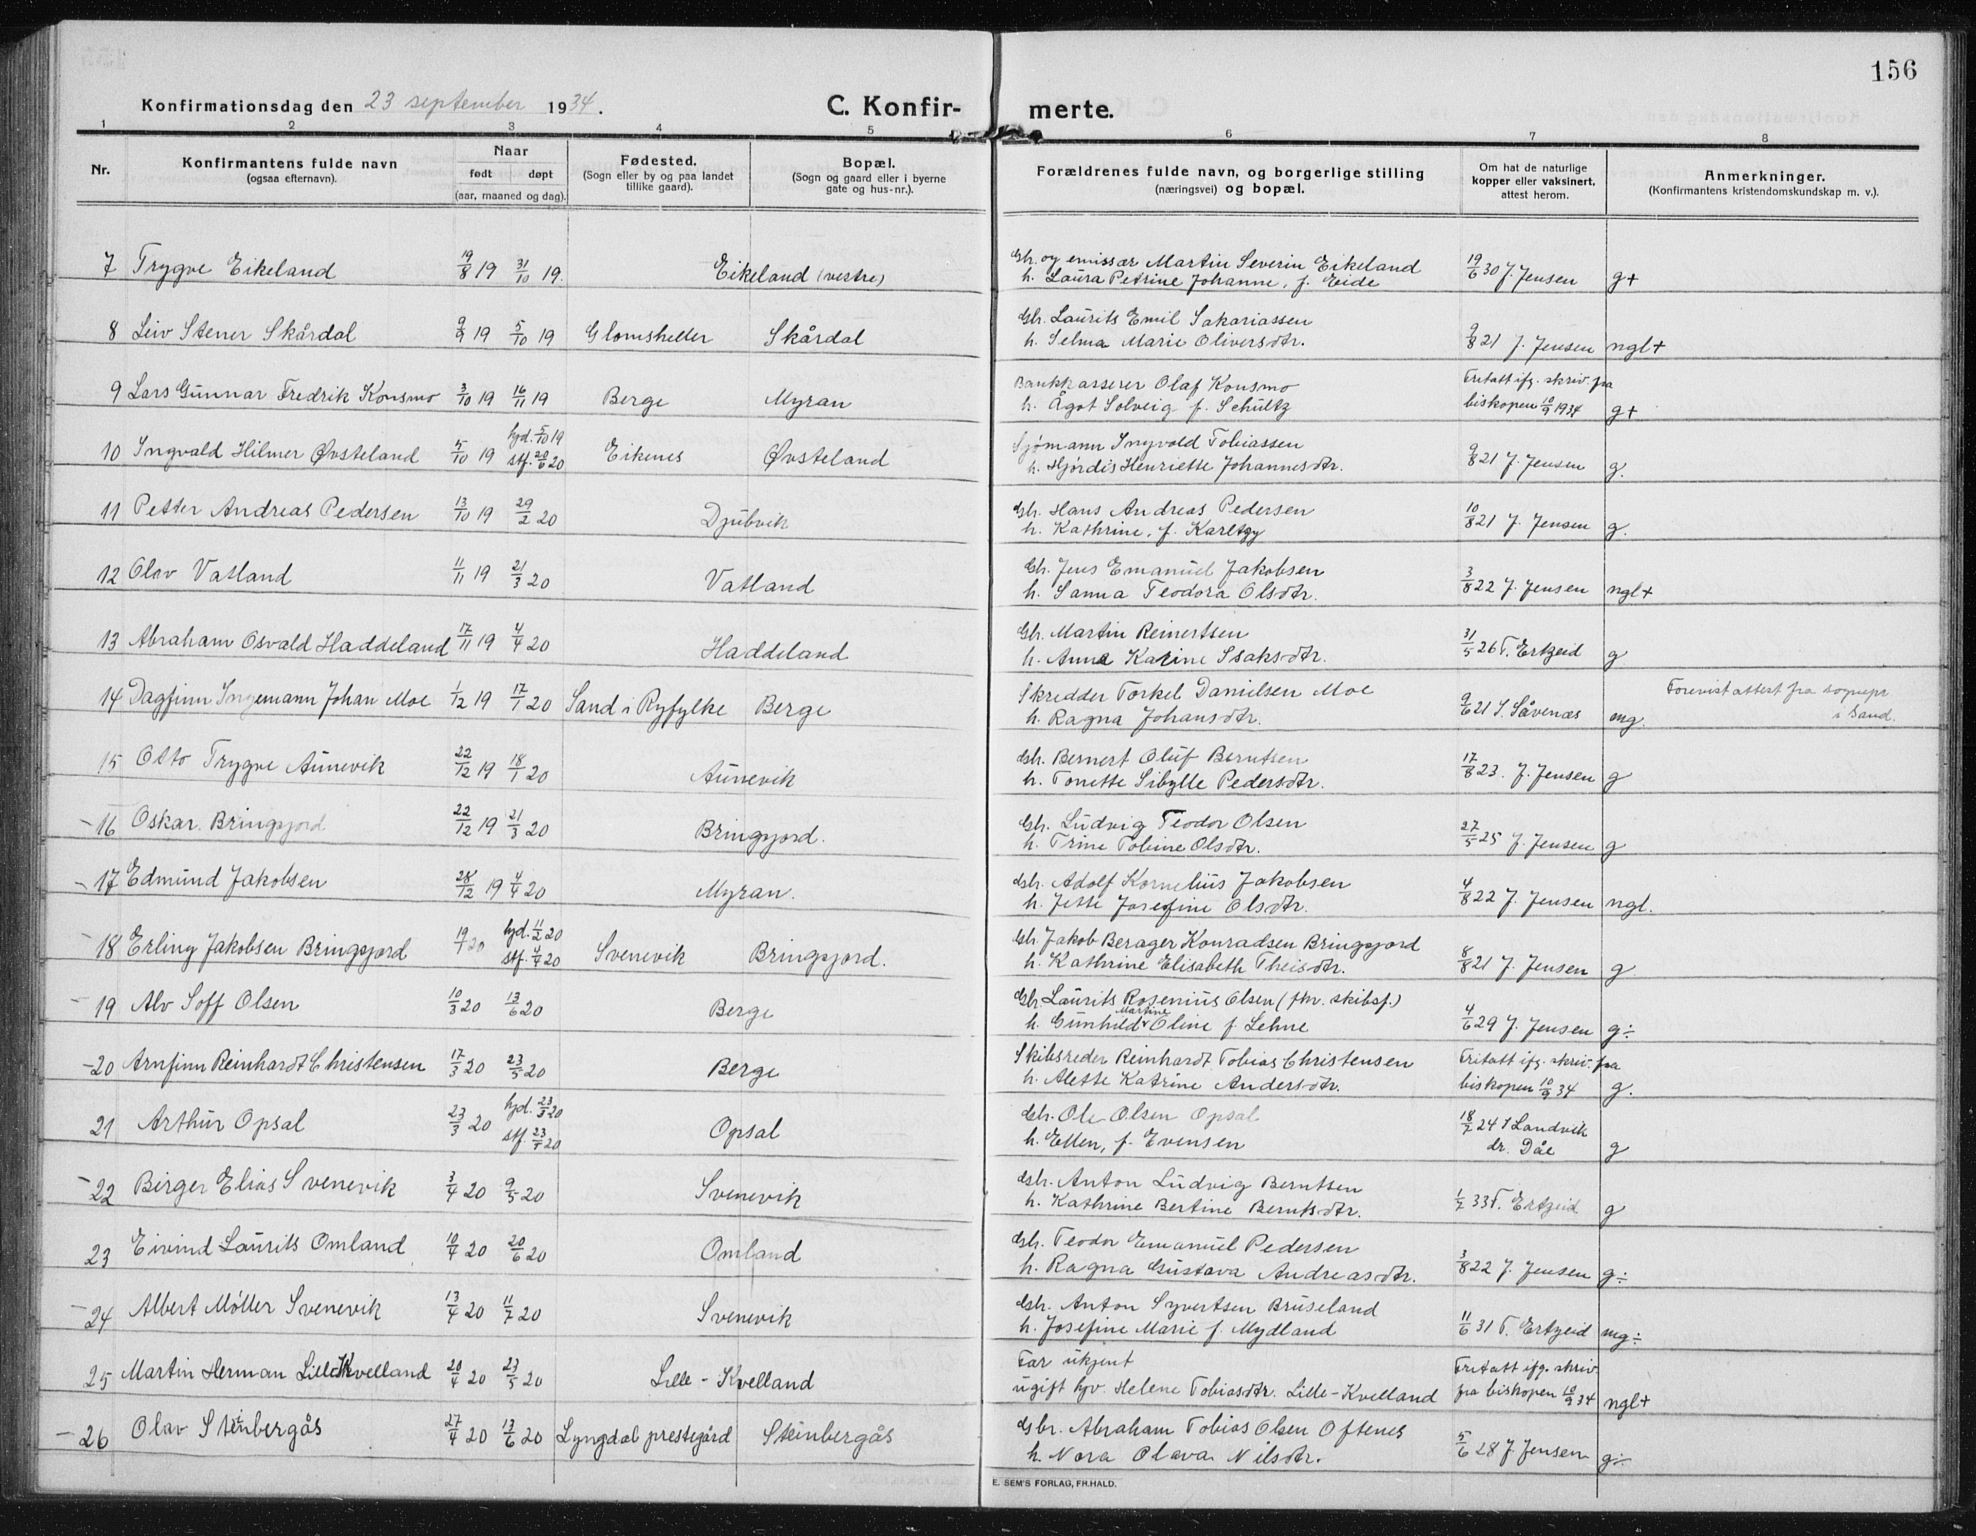 156
Konfirmationsdag den 23 september 1934.
C. Konfir- merte.
1 2 3 4 5 6 7 8
Nr.
Konfirmantens fulde navn
(ogsaa efternavn).
Naar
født døpt
(aar, maaned og dag).
Fødested.
(Sogn eller by og paa landet
tillike gaard).
Bopæl.
(Sogn og gaard eller i byerne
gate og hus-nr.).
Forældrenes fulde navn, og borgerlige stilling
(næringsvei) og bopæl.
Om hat de naturlige
kopper eller vaksinert,
attest herom.
Anmerkninger.
(Konfirmantens kristendomskundskap m. v.).
7 Trygve Eikeland 19/8 19 31/10 19. Eikeland (vestre) Gbr. og emissær Martin Severin Eikeland 19/6 30 J. Jensen g+
h. Laura Petrine Johanne, f. Eide
8 Leiv Stener Skårdal 9/9 19 5/10 19 Glomsheller Skårdal Gbr. Laurits Emil Sakariassen 9/8 21 J. Jensen ngl+
h. Selma Marie Oliversdtr.
9 Lars Gunnar Fredrik Konsmo 3/10 19 16/11 19 Berge Myran Bankkasserer Olaf Konsmo Fritatt ifg. skriv. fra
h. Ågot Solveig f. Schultz biskopen 10/9 1934 g+
10 Ingvald Hilmer Øvsteland 5/10 19 hjd. 5/10 19 Eikenes Øvsteland Sjømann Ingvald Tobiassen 9/8 21 J. Jensen g.
stf. 20/6 20 h. Hjørdis Henriette Johannesdtr.
11 Petter Andreas Pedersen 13/10 19 29/2 20 Djubvik Gbr. Hans Andreas Pedersen 10/8 21 J. Jensen g.
h. Kathrine, f.
12 Olav Vatland 11/11 19 21/3 20 Vatland Gbr. Jens Emanuel Jakobsen 3/8 22 J. Jensen ngl+
h. Sanna Teodora Olsdtr.
13 Abraham Osvald Haddeland 17/11 19 4/4 20 Haddeland Gbr. Martin Reinertsen 31/5 26 T. Ertzeid g
h. Anna Karine Isaksdtr.
14 Dagfinn Ingemann Johan Moe 1/12 19 17/1 20 Sand i Ryfylke Berge Skredder Torkel Danielsen Moe 9/6 21 S. Såvenæs mg. Forevist attest fra sognepr
h. Ragna Johansdtr. i Sand.
15 Otto Trygve Aunevik 22/12 19 18/1 20 Aunevik Gbr. Bernert Oluf Berntsen 17/8 23. J. Jensen g
h. Tonette Sibylle Pedersdtr.
16 Oskar Bringsjord 22/12 19 21/3 20 Bringsjord. Gbr. Ludvig Teodor Olsen 27/5 25 J. Jensen g
h. Trine Tobine Olsdtr.
17 Edmund Jakobsen 28/12 19 4/4 20 Myran. Gbr. Adolf Kornelius Jakobsen 4/8 22 J. Jensen ngl.
h. Jette Josefine Olsdtr.
18 Erling Jakobsen Bringsjord 19/1 20 hjd. 11/2 20 Svenevik Bringsjord. Gbr. Jakob Berager Konradsen Bringsjord 8/8 21 J. Jensen g
stf. 4/4 20 h. Kathrine Elisabeth Theisdtr.
19 Alv Soff Olsen 10/3 20 13/6 20 Berge Gbr. Laurits Rosenius Olsen (fhv. skibsf.) 4/6 29 J. Jensen g÷
h. Gunhild Martine Oline f. Lehne
20 Arnfinn Reinhardt Christensen 17/3 20 23/5 20 Berge Skibsreder Reinhardt Tobias Christensen Fritatt ifg. skriv. fra
h. Alette Katrine Andersdtr. biskopen 10/9 34 g.
21 Arthur Opsal 23/3 20 hjd. 23/3 20 Opsal Gbr. Ole Olsen Opsal 18/7 24 S Landvik
stf. 23/5 20 h. Ellen, f. Evensen dr. Dåe g
22 Birger Elias Svenevik 3/4 20 9/5 20 Svenevik Gbr. Anton Ludvig Berntsen 1/7 33 T. Ertzeid g
h. Kathrine Bertine Berntsdtr.
23 Eivind Laurits Omland 10/4 20 20/6 20 Omland Gbr. Teodor Emanuel Pedersen 3/8 22 J. Jensen g÷
h. Ragna Gustava Andreasdtr.
24 Albert Møller Svenevik 13/4 20 11/7 20 Svenevik Gbr. Anton Syvertsen Bruseland 11/6 31 T. Ertzeid mg÷
h. Josefine Marie f. Mydland
25 Martin Herman Lille-Kvelland 20/4 20 23/5 20 Lille-Kvelland Far ukjent Fritatt ifg. skriv.
ugift hjv. Helene Tobiasdtr. Lille-Kvelland fra biskopen 10/9 34 ngl+
26 Olav Steinbergås 27/4 20 13/6 20 Lyngdal prestegård Steinbergås Gbr. Abraham Tobias Olsen Oftenes 5/6 28 J. Jensen g÷
h. Nora Olava Nilsdtr.
E. SEM'S FORLAG, FR.HALD.